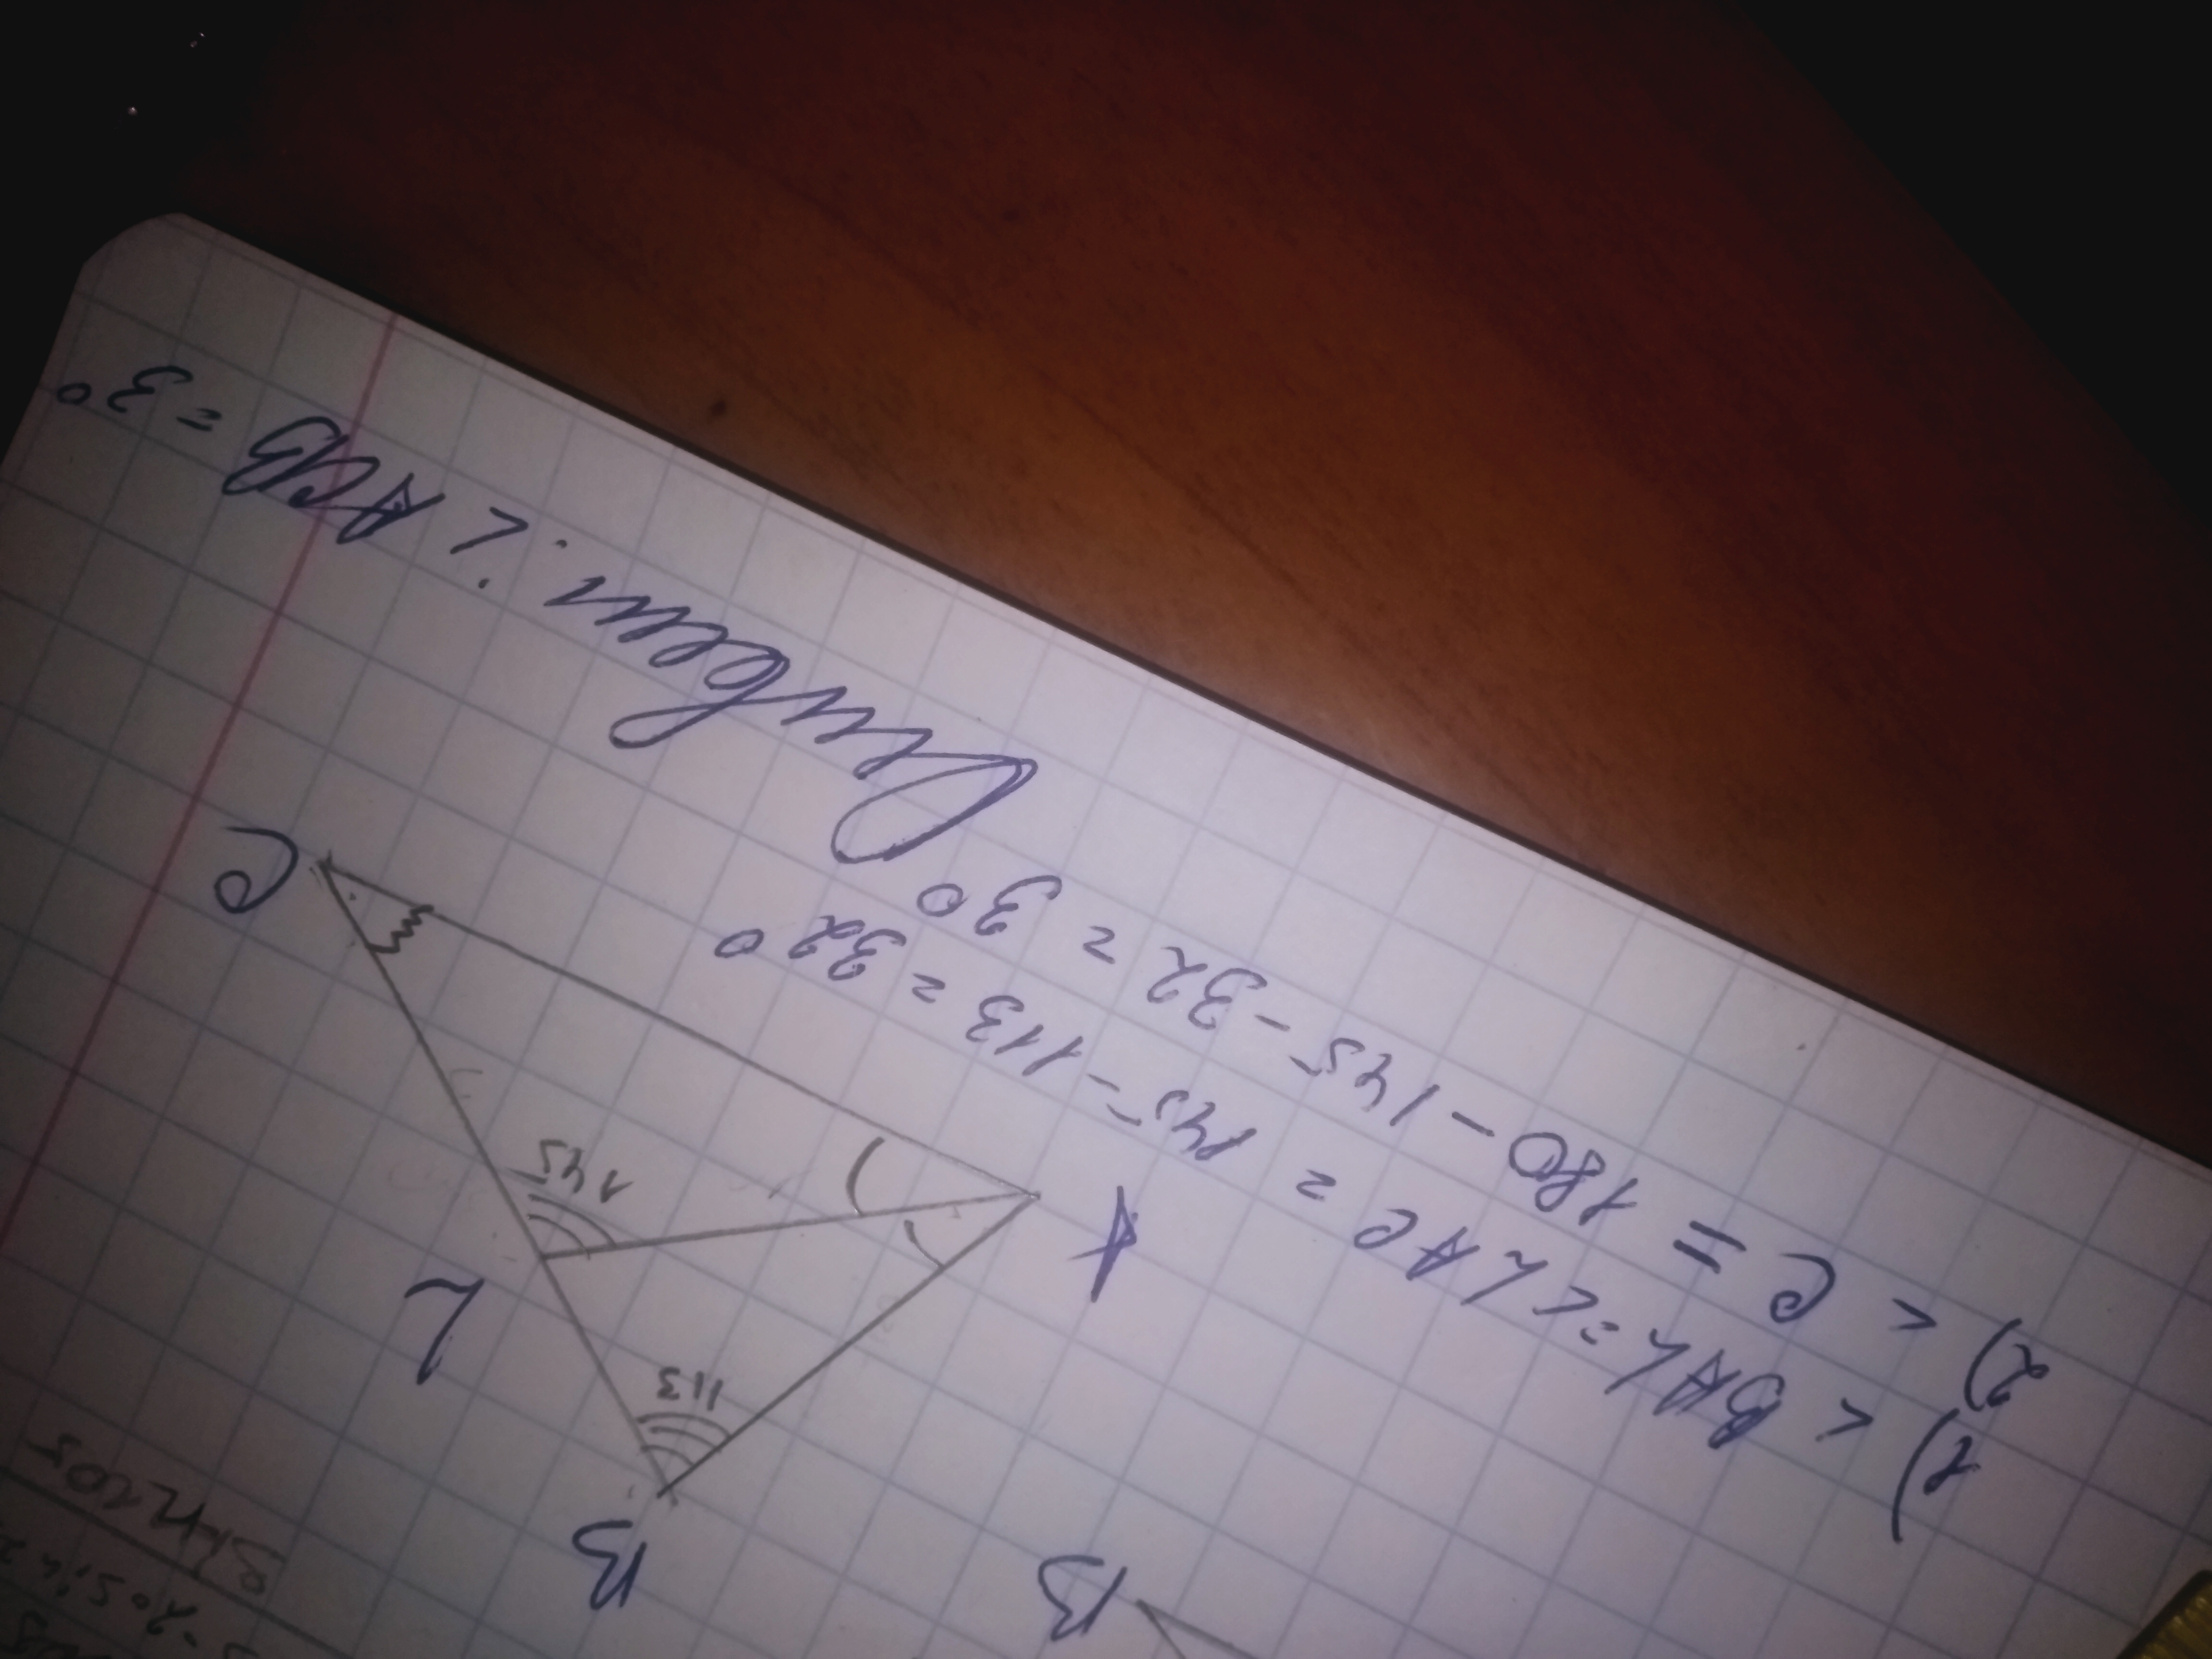 B
B
113
L
A
145
C
1) < BAL = < LAC = 145 - 113 = 32°
2) < C = 180 - 145 - 32 = 3°
Ответ: < ACB = 3°